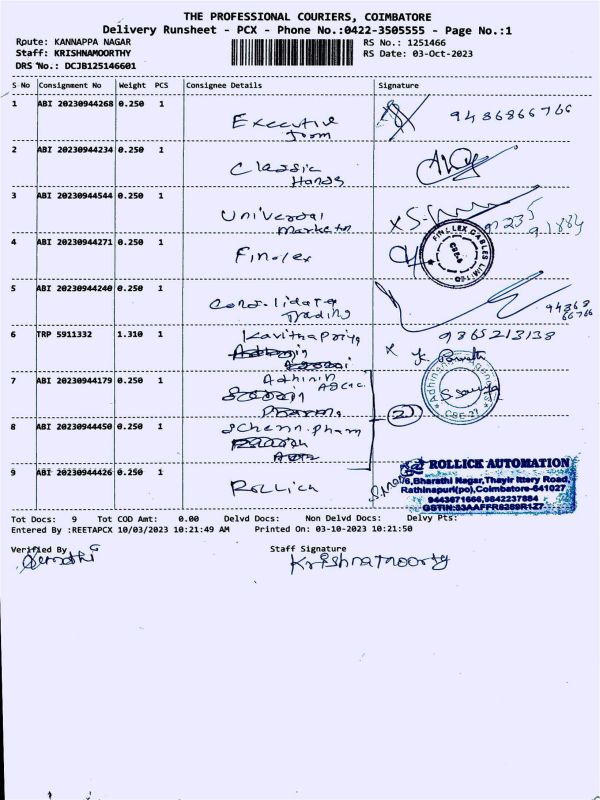 THE PROFESSIONAL COURIERS, COIMBATORE
Delivery Runsheet - PCX - Phone No.:0422-3505555 - Page No.:1
Route: KANNAPPA NAGAR
Staff: KRISHNAMOORTHY
DRS No.: DCJB125146601
RS No.: 1251466
RS Date: 03-Oct-2023
S No Consignment No Weight PCS Consignee Details Signature
1 ABI 20230944268 0.250 1 Executive 9486866766
2 ABI 20230944234 0.250 1 Classic
Hands
3 ABI 20230944544 0.250 1 Universal
4 ABI 20230944271 0.250 1 Finolex
FINOLEX CABLES LIMITED
5 ABI 20230944240 0.250 1 Consolidated
Trading
6 TRP 5911332 1.310 1 Kavithapriya 9865213138
7 ABI 20230944179 0.250 1
CBE-27
8 ABI 20230944450 0.250 1
2
9 ABI 20230944426 0.250 1 Rollick
ROLLICK AUTOMATION
Bharathi Nagar, Thayir Ittery Road,
Rathinapuri(po), Coimbatore-641027
9443671666, 9842237884
Tot Docs: 9 Tot COD Amt: 0.00 Delvd Docs: Non Delvd Docs: Delvy Pts:
Entered By :REETAPCX 10/03/2023 10:21:49 AM Printed On: 03-10-2023 10:21:50
Verified By
Staff Signature
Krishnamoorthy